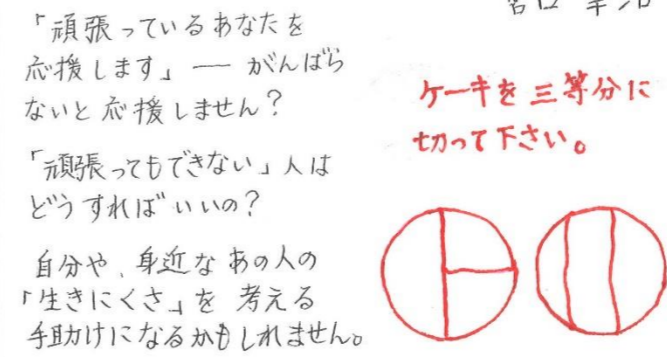 「頑張っているあなたを
応援します」― がんばら
ないと応援しません?
「頑張ってもできない」人は
どうすればいいの?
自分や、身近なあの人の
「生きにくさ」を 考える
手助けになるかもしれません。
ケーキを三等分に
切って下さい。